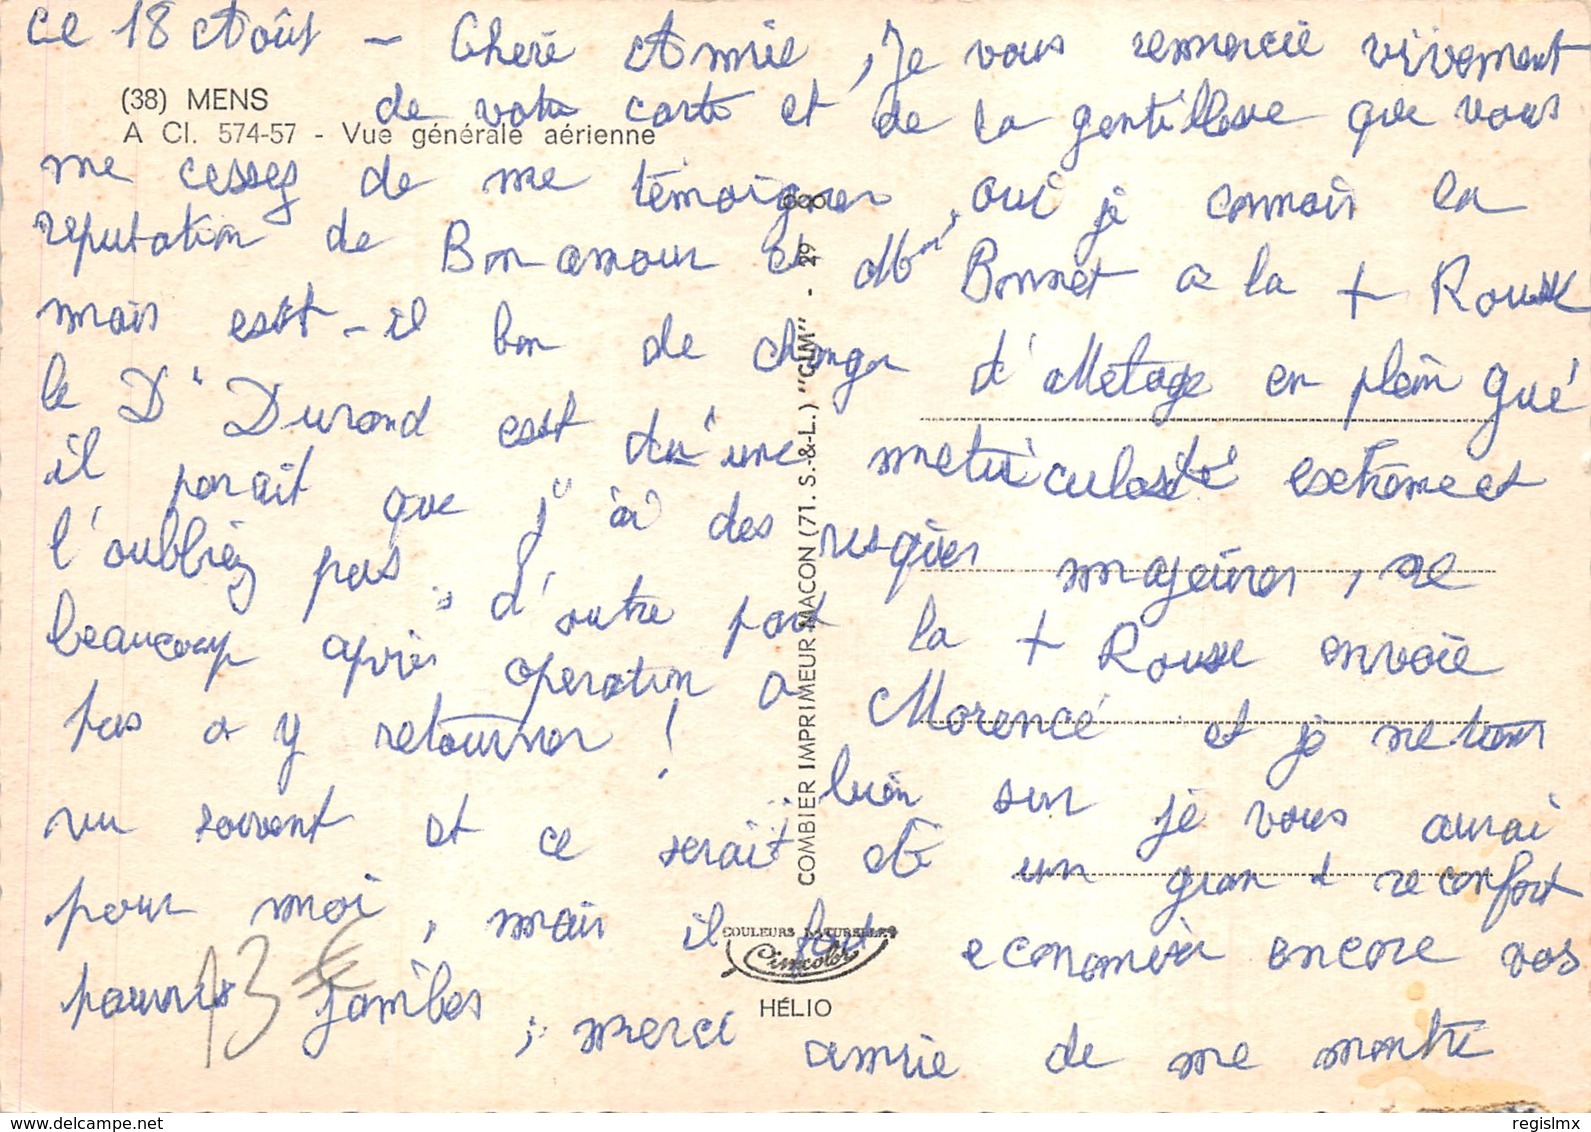 Ce 18 Août - Chere Amie, Je vous remercie vivement
(38) MENS
de votre carte et de la gentillesse que vous
A Cl. 574-57 - Vue générale aérienne
me cessez de me témoigner, oui je connais la
reputation de Bonamour et Mr Bonnet a la + Rousse
mais est-il bon de changer d'Attelage en plein Gué
le Dr Durand est d'une meticulosité extrême et
il parait que j'ai des risques majeures, ne
l'oubliez pas. d'autre part la + Rousse envoie
beaucoup après operation a Morencé et je ne tiens
pas a y retourner ! bien sur je vous aurai
vu souvent et ce serait été un grand reconfort
pour moi, mais il faut economisér encore vos
pauvres jambes, merci amie de me montre
13 €
COMBIER IMPRIMEUR MACON (71. S.-&-L.) "CIM" - 29
COULEURS NATURELLES
Cimcolor
HÉLIO
delcampe.net
regislmx